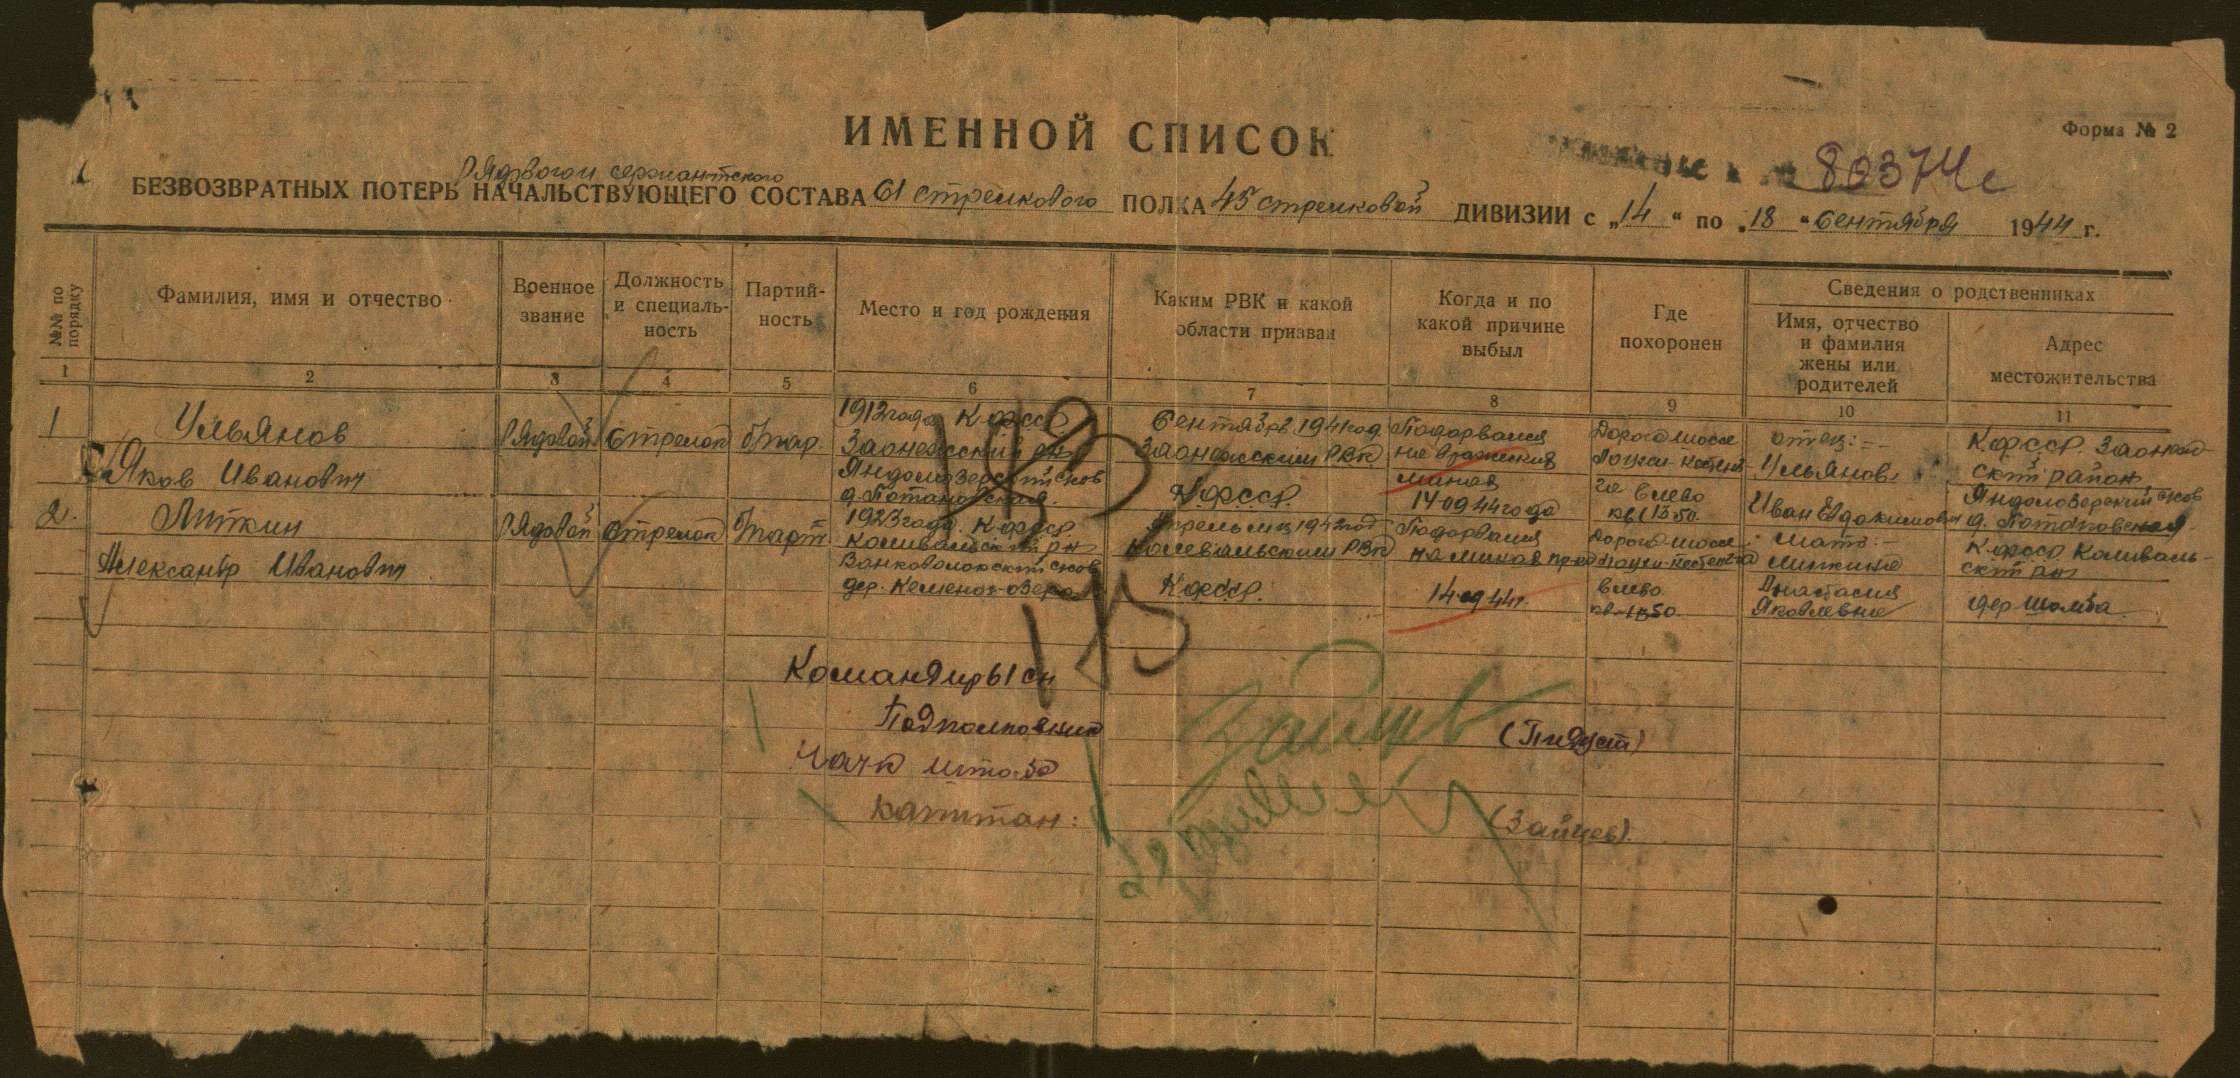 ИМЕННОЙ СПИСОК
Форма № 2
80374с
рядового и сержантского
БЕЗВОЗВРАТНЫХ ПОТЕРЬ НАЧАЛЬСТВУЮЩЕГО СОСТАВА 61 стрелкового ПОЛКА 45 стрелковой ДИВИЗИИ с „14“ по „18“ Сентября 1944 г.
№№ по порядку
Фамилия, имя и отчество
Военное звание
Должность и специаль-ность
Партий-ность
Место и год рождения
Каким РВК и какой области призван
Когда и по какой причине выбыл
Где похоронен
Сведения о родственниках
Имя, отчество и фамилия жены или родителей
Адрес местожительства
1 2 3 4 5 6 7 8 9 10 11
1
Ульянов
Яков Иванович
Рядовой
Стрелок
б/пар.
1912 года К-фсср
Заонежский рн
Яндомозерский с/сов
д. Потановская
Сентябрь 1941 год
Заонежским РВК
К-фсср.
Подорвался
на вражеских
минах
14-09-44 года
Дорога шоссе
влево
кв. 1350.
отец:
Ульянов
Иван Евдокимович
К.фсср. Заонеж
ский район,
Яндомозерский с/сов
2.
Липкин
Александр Иванович
Рядовой
Стрелок
б/парт
1923 года. К-фсср
рн
с/сов
дер.
Апрель м-ц 1942 год
РВК
К.фсср.
Подорвался
на минах
14-09 44г.
Дорога шоссе
влево
мать:
Липкина
Анастасия
Яковлевна
К-фсср
ский рн
дер. Шомба
143
145
Командир 61 сп
Подполковник
(Пидуст)
Нач-к штаба
Капитан:
(Зайцев).
Зайцев